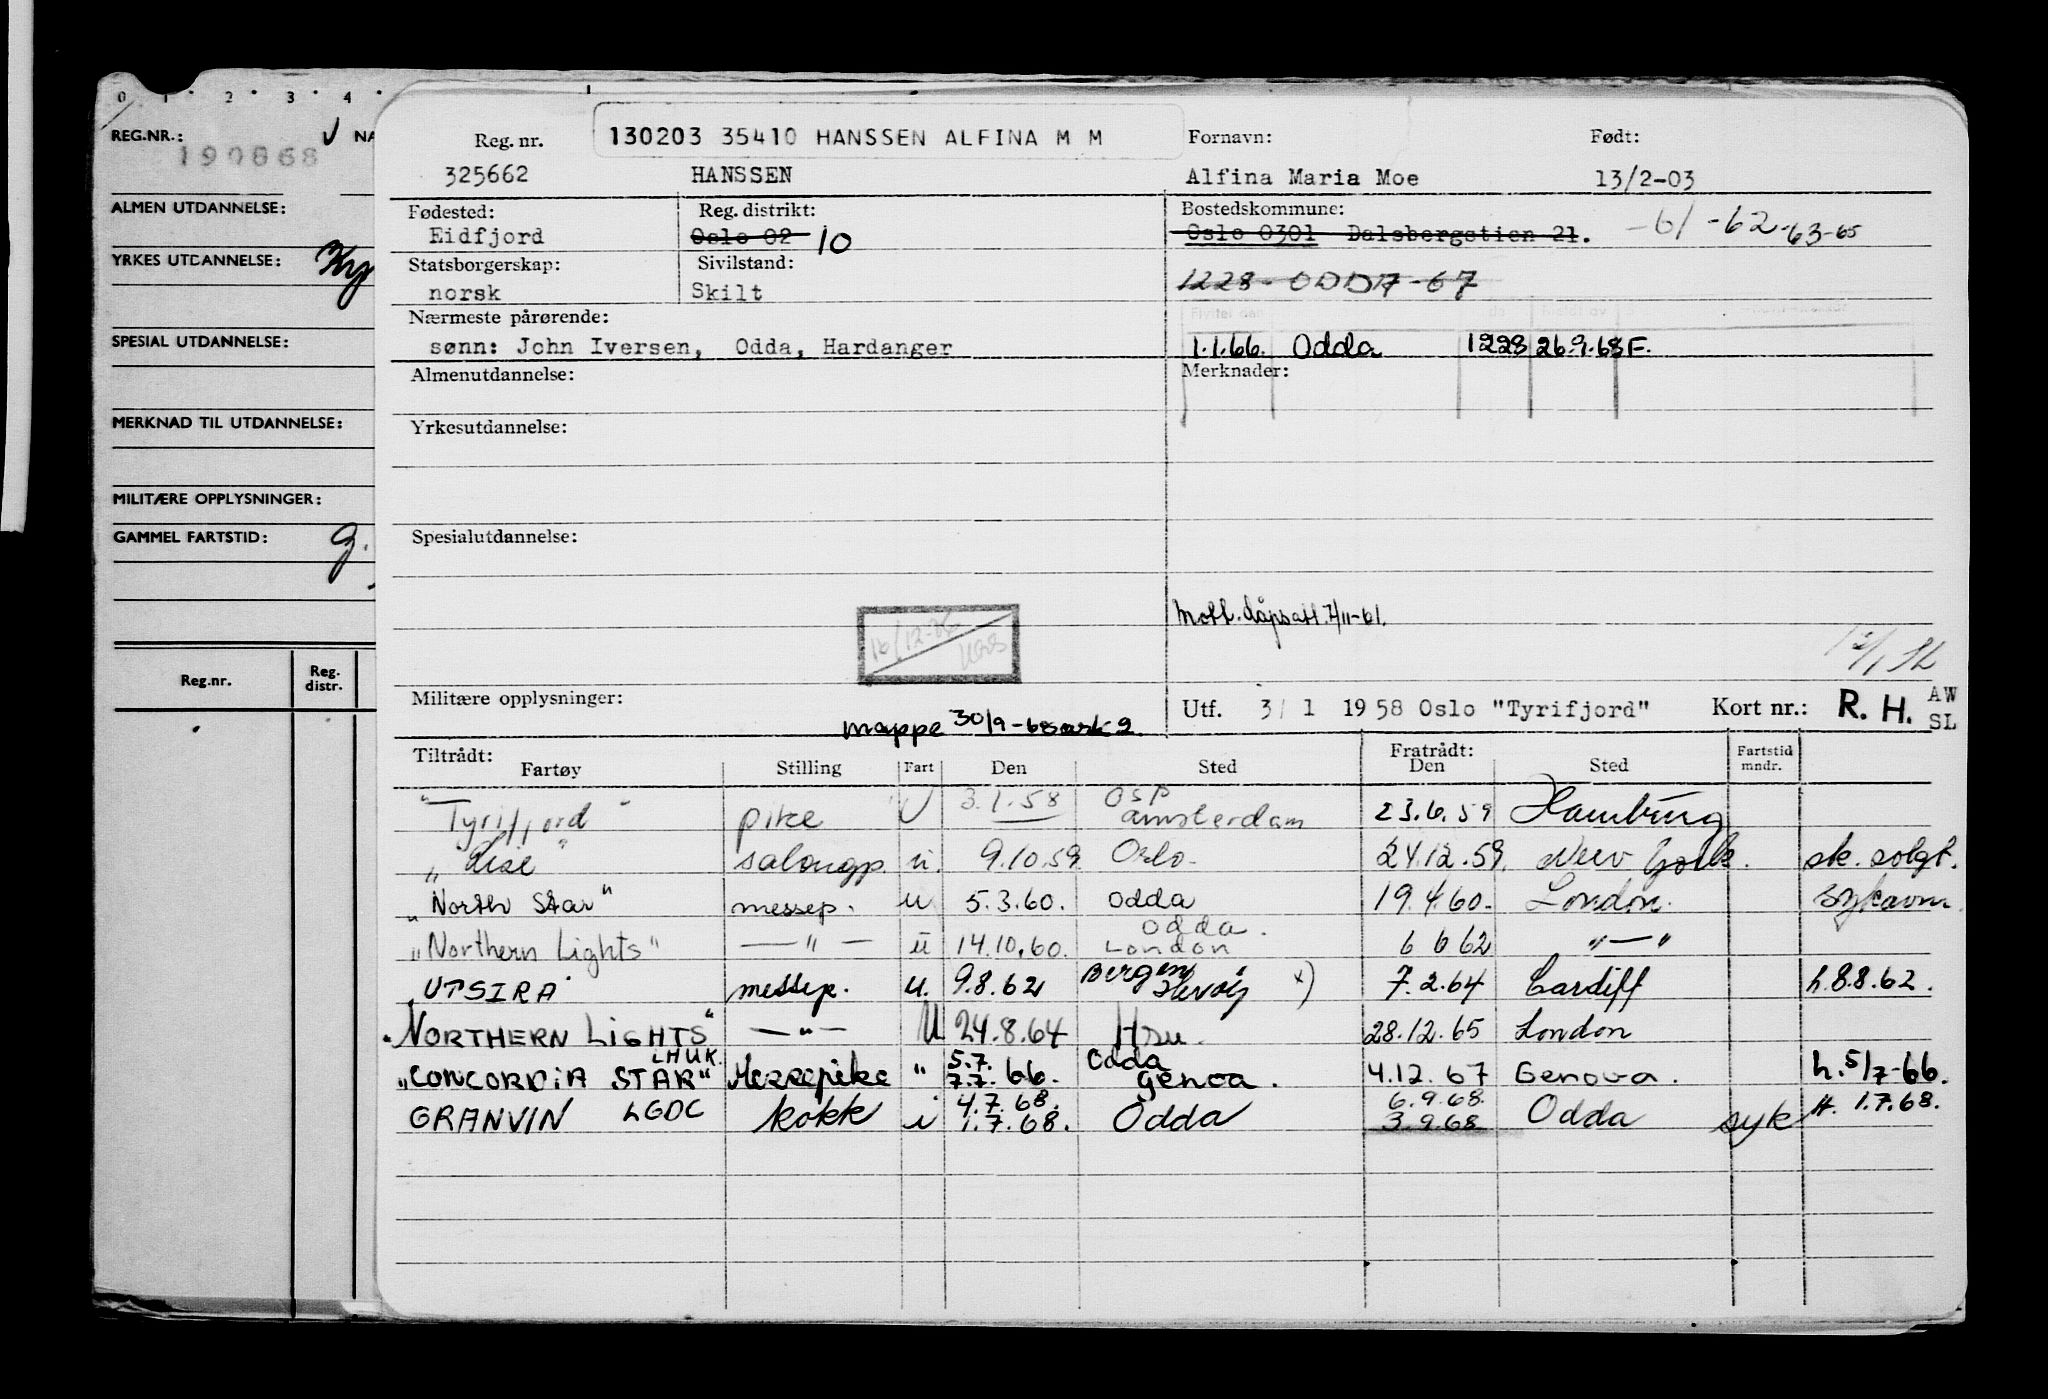 0 1 2 3 4
REG.NR.: NA
190868
ALMEN UTDANNELSE:
YRKES UTDANNELSE:
SPESIAL UTDANNELSE:
MERKNAD TIL UTDANNELSE:
MILITÆRE OPPLYSNINGER:
GAMMEL FARTSTID: g.
Reg.nr. Reg. distr.
Reg. nr. 130203 35410 HANSSEN ALFINA M M Fornavn: Født:
325662 HANSSEN Alfina Maria Moe 13/2-03
Fødested: Reg. distrikt: Bostedskommune:
Eidfjord Oslo 02 10 Oslo 0301 Dalsbergstien 21. -61 -62-63-65
Statsborgerskap: Sivilstand:
norsk Skilt 1228 - ODDA - 67
Nærmeste pårørende:
sønn: John Iversen, Odda, Hardanger 1.1.66. Odda 1228 26.9.68 F.
Almenutdannelse: Merknader:
Yrkesutdannelse:
Spesialutdannelse:
Mott. dåpsatt. 7/11-61.
16/12-06
Militære opplysninger: Utf. 3/1 1958 Oslo "Tyrifjord" Kort nr.: R. H. AW SL
mappe 30/9-68 ark 2.
Tiltrådt: Fratrådt:
Fartøy Stilling Fart Den Sted Den Sted Fartstid mndr.
"Tyrifjord" pike U 3.1.58 Osp Amsterdam 23.6.59 Hamburg
"Lise" salongp. u. 9.10.59. Oslo. 24.12.59. New York. sk. solgt.
"North Star" messep. u 5.3.60. Odda 19.4.60. London. sykavm.
"Northern Lights" —"— u 14.10.60. Odda. London 6 6 62 "—"
UTSIRA messep. u. 9.8.62 Bergen x) 7.2.64 Cardiff h.8.8.62.
"NORTHERN LIGHTS" —"— U 24.8.64 Hsu. 28.12.65 London
"CONCORDIA STAR" LHUK Messepike " 5.7. 7.7.66. Odda Genoa. 4.12.67 Genova. h.5/7-66.
GRANVIN LGDC kokk i 4.7.68. 1.7.68. Odda 6.9.68. 3.9.68 Odda syk H. 1.7.68.